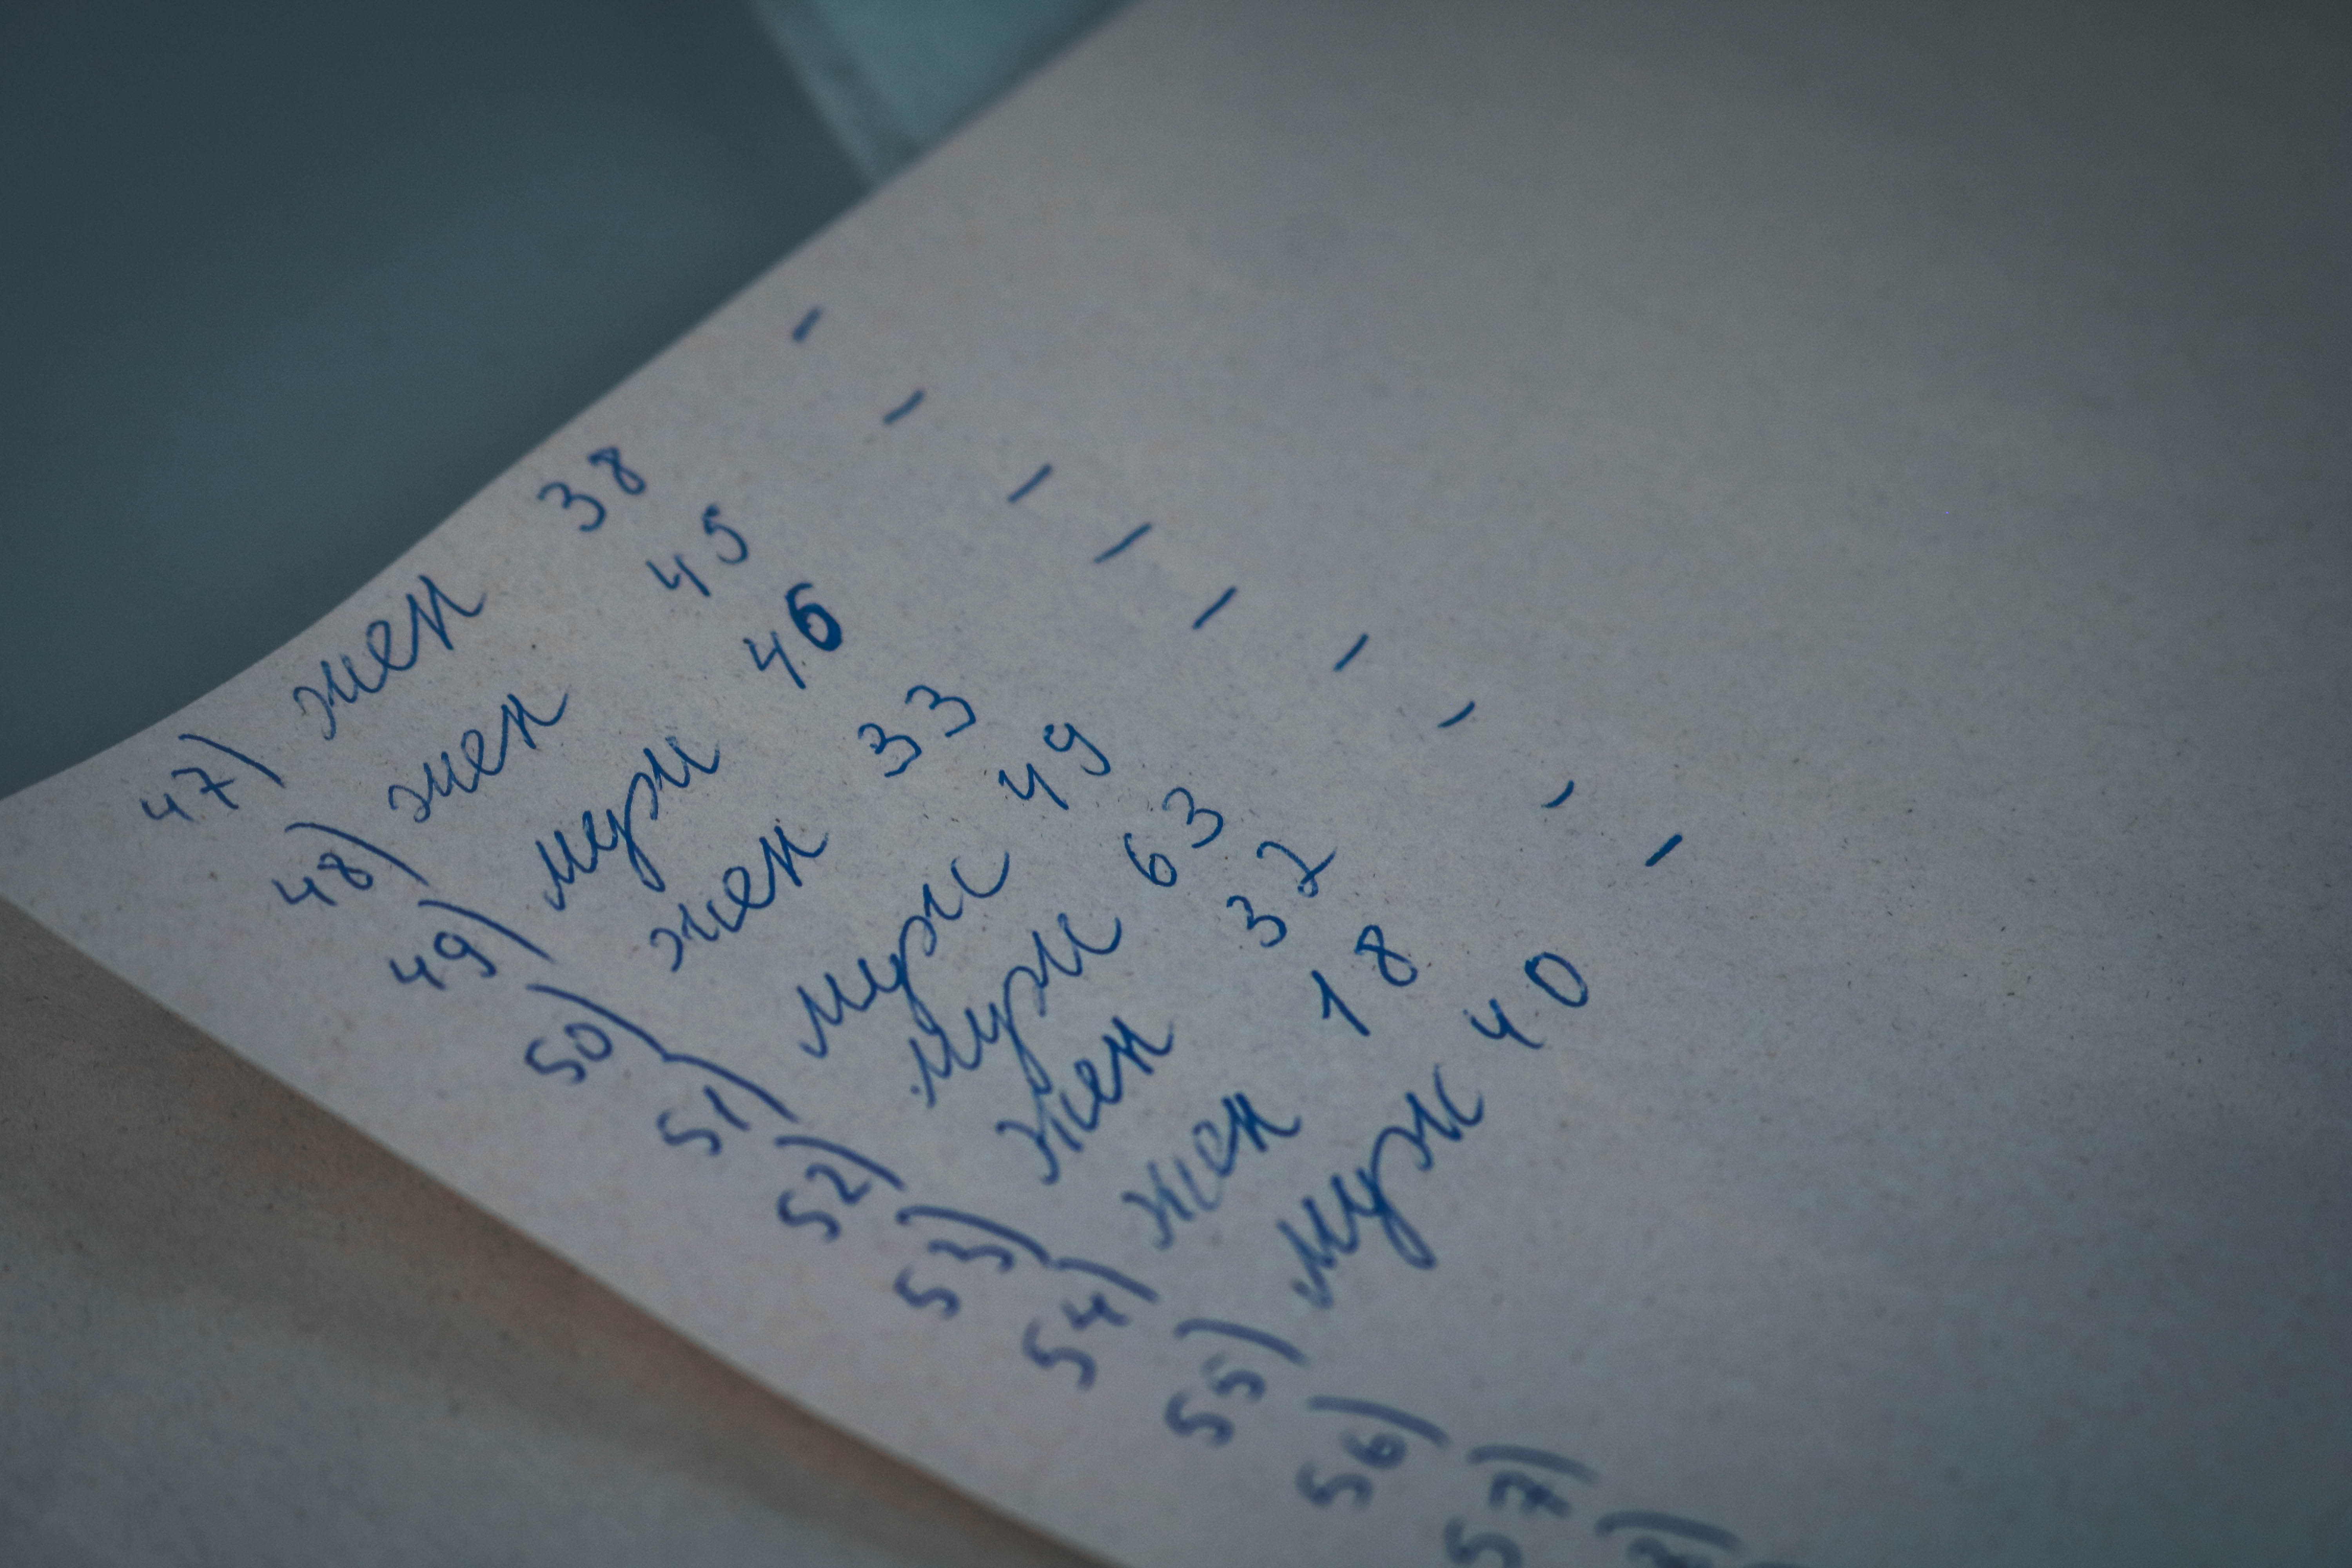 47) жен 38 -
48) жен 45 -
49) муж 46 -
50) жен 33 -
51) муж 49 -
52) муж 63 -
53) жен 32 -
54) жен 18 -
55) муж 40 -
56)
57)